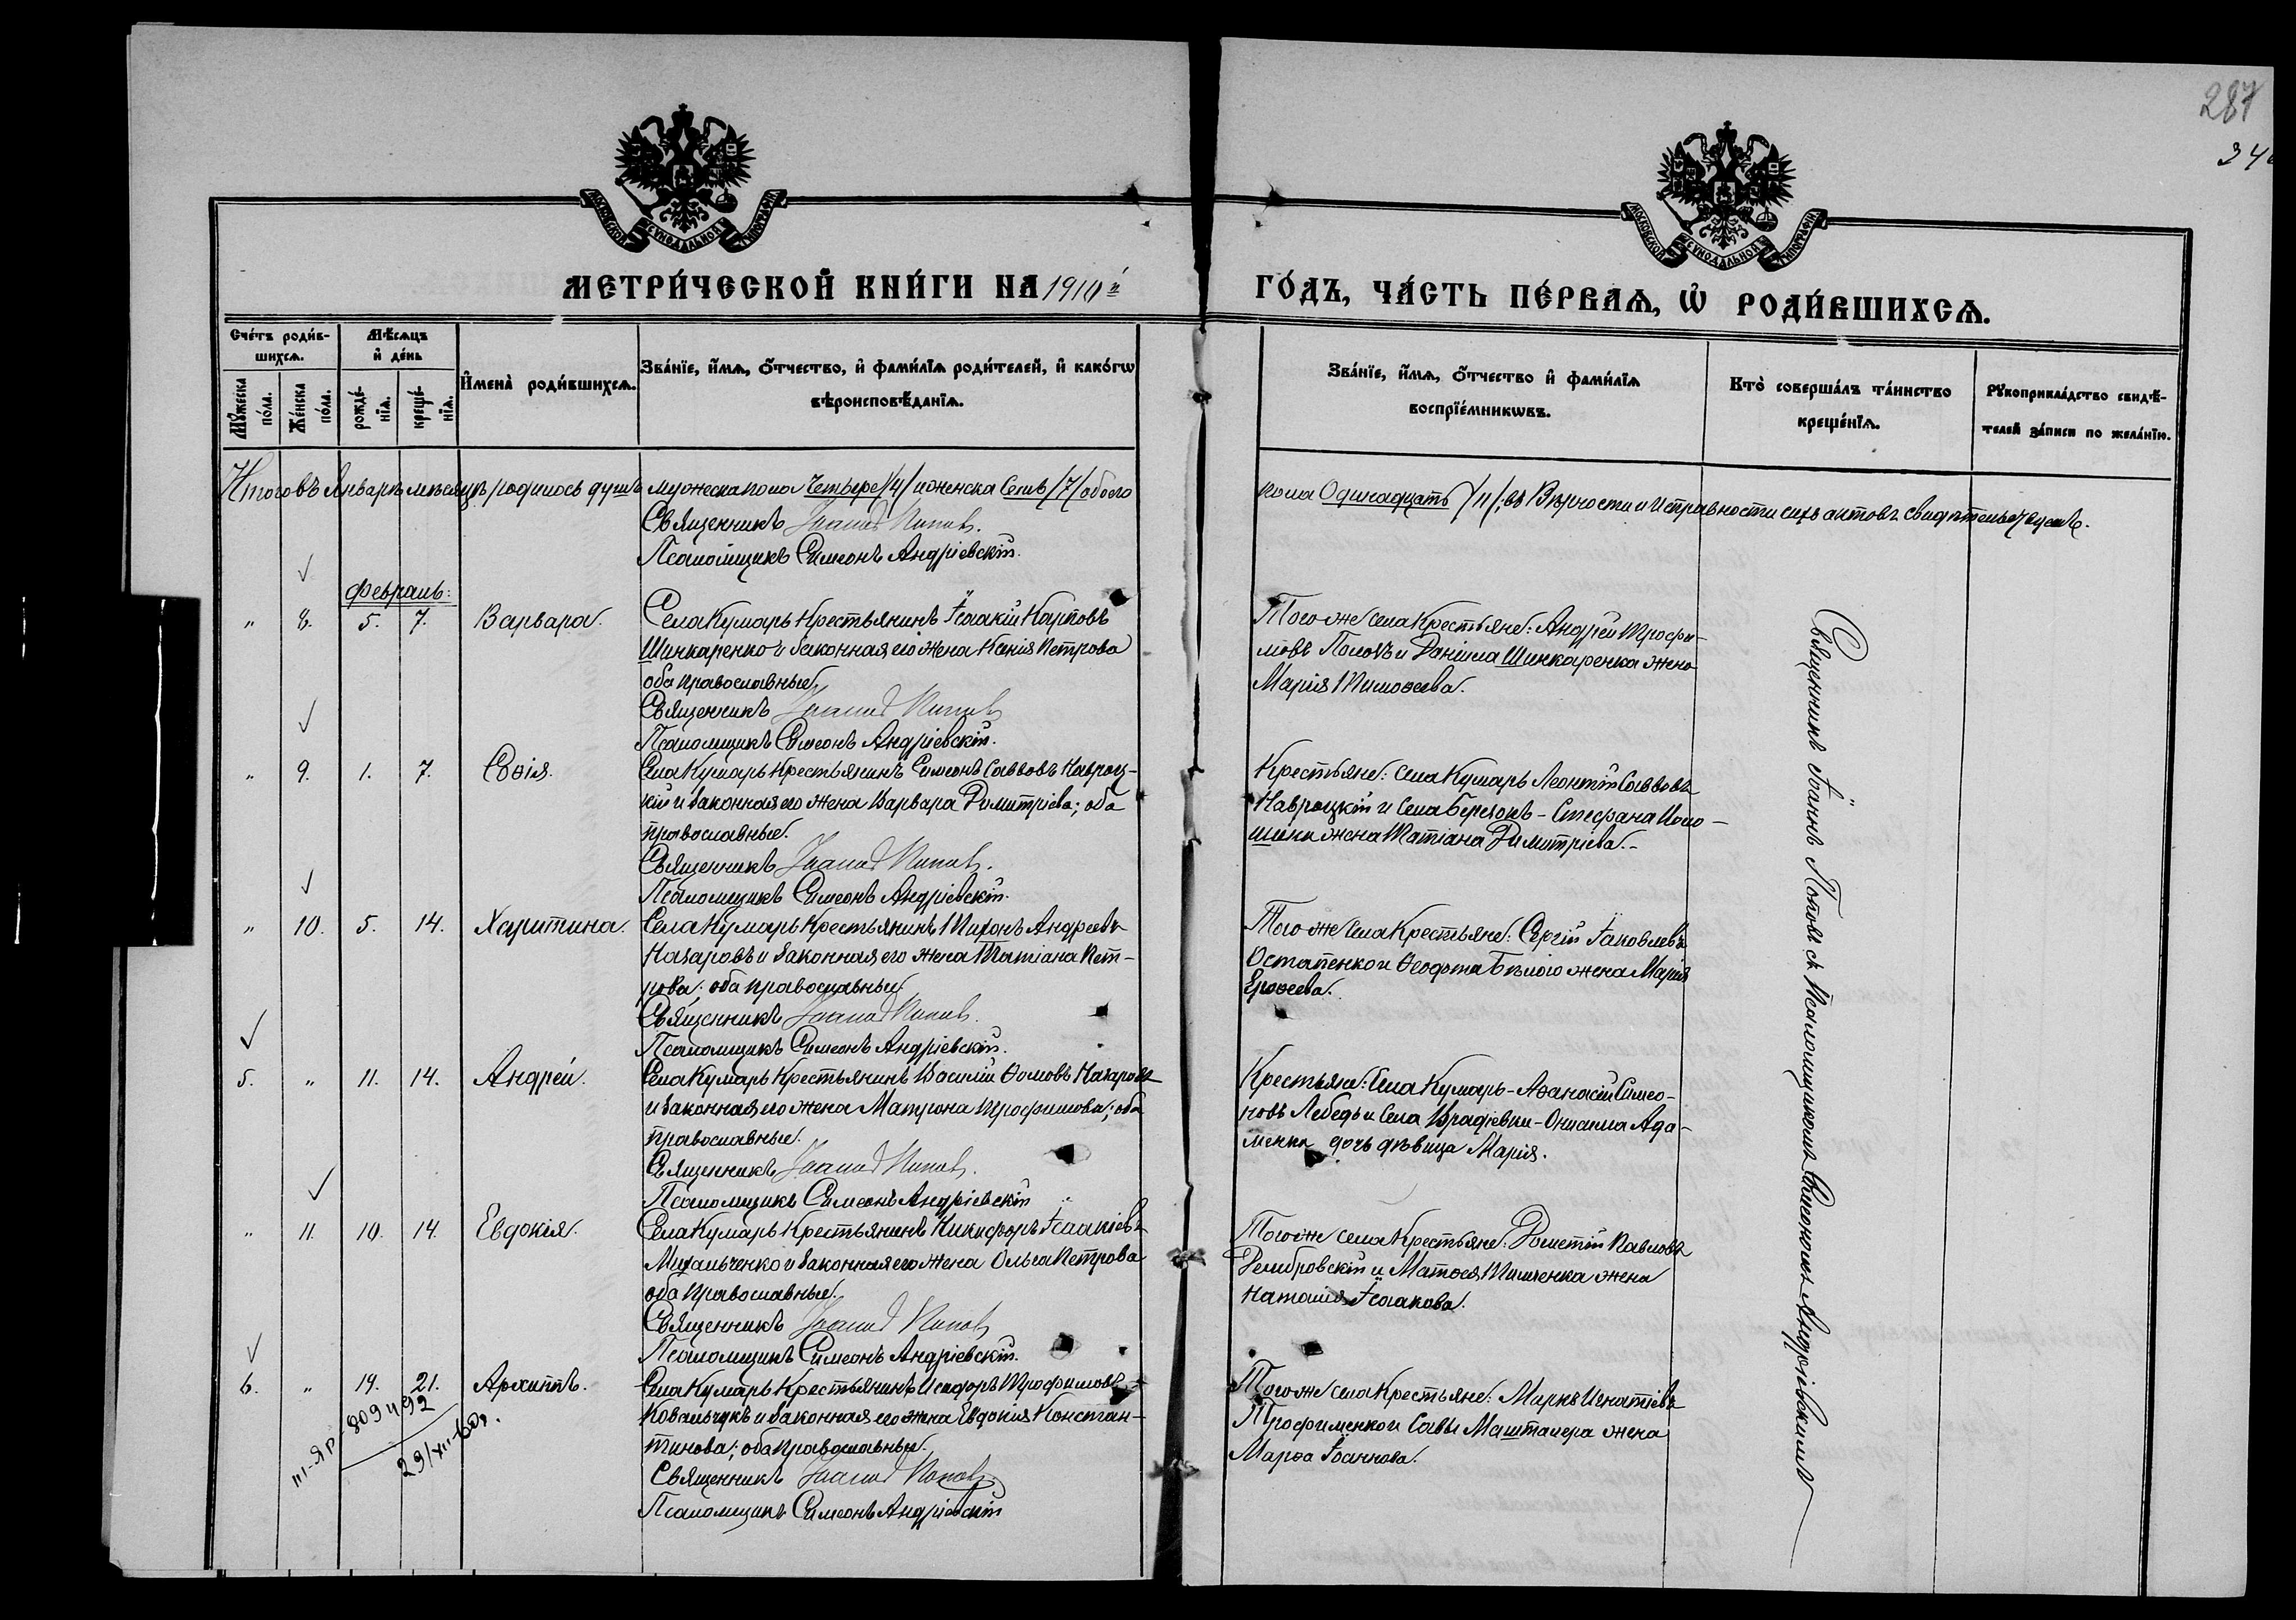 287
34
МОСКОВСКОЙ СѴНОДАЛЬНОЙ ТИПОГРАФІИ
МОСКОВСКОЙ СѴНОДАЛЬНОЙ ТИПОГРАФІИ
МЕТРИ́ЧЕСКОЙ КНИ́ГИ НА 1910й
ГО́ДЪ, ЧА́СТЬ ПЕ́РВАѦ, Ѽ РОДИ́ВШИХСѦ.
Сче́тъ роди́в-
шихсѧ.
Мѣ́сѧцъ
и҆ де́нь
Мꙋ́жеска
по́ла.
Же́нска
по́ла.
рожде́-
нїѧ.
креще́-
нїѧ.
И҆мена̀ роди́вшихсѧ.
Зва́нїе, и҆́мѧ, ѻ҆́тчество, и҆ фами́лїѧ роди́телей, и҆ како́гѡ
вѣроисповѣ́данїѧ.
Зва́нїе, и҆́мѧ, ѻ҆́тчество и҆ фами́лїѧ
воспрїе́мникѡвъ.
Кто̀ соверша́лъ та́инство
креще́нїѧ.
Рꙋкоприкла́дство свидѣ́-
телей за́писи по жела́нїю.
Итого въ Январѣ мѣсяцѣ родилось душъ мужеска пола Четыре /4/ и женска Семь /7/ обоего
пола Одинадцать /11/, въ Вѣрности и Исправности сихъ актовъ свидѣтельствуемъ.
Священникъ Іоаннъ Поповъ.
Псаломщикъ Симеонъ Андріевскій.
Февраль:
" 8. 5. 7. Варвара. Села Кумарь Крестьянинъ Ісаакій Карповъ
Шинкаренко и законная его жена Ксенія Петрова
оба православные.
Священникъ Іоаннъ Поповъ
Псаломщикъ Симеонъ Андріевскій.
Того же села Крестьяне: Андрей Трофи-
мовъ Попокъ и Даніила Шинкаренка жена
Марія Тимоѳеева.
" 9. 1. 7. Евѳія. Села Кумарь Крестьянинъ Симеонъ Саввовъ Навроц-
кій и законная его жена Варвара Димитріева; оба
православные.
Священникъ Іоаннъ Поповъ.
Псаломщикъ Симеонъ Андріевскій.
Крестьяне: села Кумарь Леонтій Саввовъ
Навроцкій и села Березокъ - Стефана
жена Татіана Димитріева.-
" 10. 5. 14. Харитина. Села Кумарь Крестьянинъ Тихонъ Андреевъ
Назаровъ и законная его жена Татіана Пет-
рова; оба православные.
Священникъ Іоаннъ Поповъ.
Псаломщикъ Симеонъ Андріевскій.
Того же села Крестьяне: Сергій Іаковлевъ
Остапенко и Ѳеофила Бѣлого жена Марія
Ероѳеева.
5. " 11. 14. Андрей. Села Кумарь Крестьянинъ Василій Ѳомовъ Назаровъ
и законная его жена Матрона Трофимова; оба
православные.
Священникъ Іоаннъ Поповъ.
Псаломщикъ Симеонъ Андріевскій
Крестьяне: Села Кумарь - Аѳанасій Симео-
новъ Лебедь и Села Врадіевки - Онисима Ада-
менка дочь дѣвица Марія.
" 11. 10. 14. Евдокія. Села Кумарь Крестьянинъ Никифоръ Ісаакіевъ
Михальченко и законная его жена Ольга Петрова
оба православные.
Священникъ Іоаннъ Поповъ
Псаломщикъ Симеонъ Андріевскій.
Того же села Крестьяне: Дометій Павловъ
Дембровскій и Матѳея Тимченка жена
Наталія Ісаакова.
6. " 19. 21. Архиппъ. Села Кумарь Крестьянинъ Исидоръ Трофимовъ
Ковальчукъ и законная его жена Евдокія Констан-
тинова; оба православные.
Священникъ Іоаннъ Поповъ
Псаломщикъ Симеонъ Андріевскій
Того же села Крестьяне: Маркъ Игнатіевъ
Трофименко и Савы Машталера жена
Марѳа Іоаннова.
Священникъ Іоаннъ Поповъ съ Псаломщикомъ Симеономъ Андріевскимъ
III-ЯР-809492
29/XII-60г.